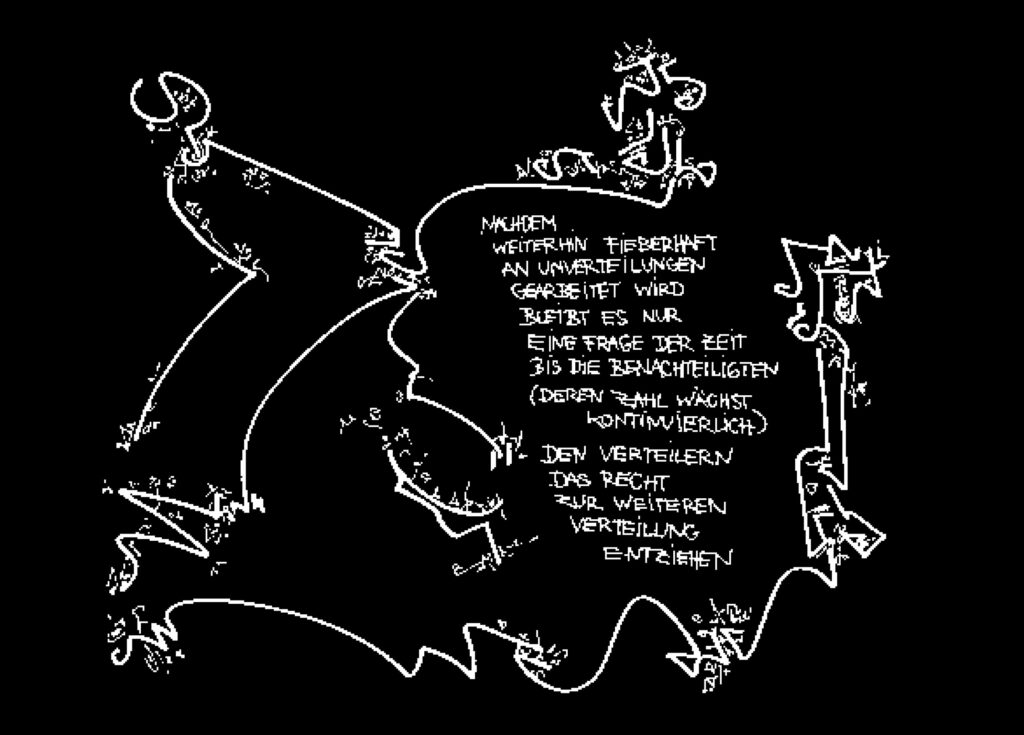 NACHDEM
WEITERHIN FIEBERHAFT
AN UNVERTEILUNGEN
GEARBEITET WIRD
BLEIBT ES NUR
EINE FRAGE DER ZEIT
BIS DIE BENACHTEILIGTEN
(DEREN ZAHL WÄCHST
KONTINUIERLICH)
DEN VERTEILERN
DAS RECHT
ZUR WEITEREN
VERTEILUNG
ENTZIEHEN